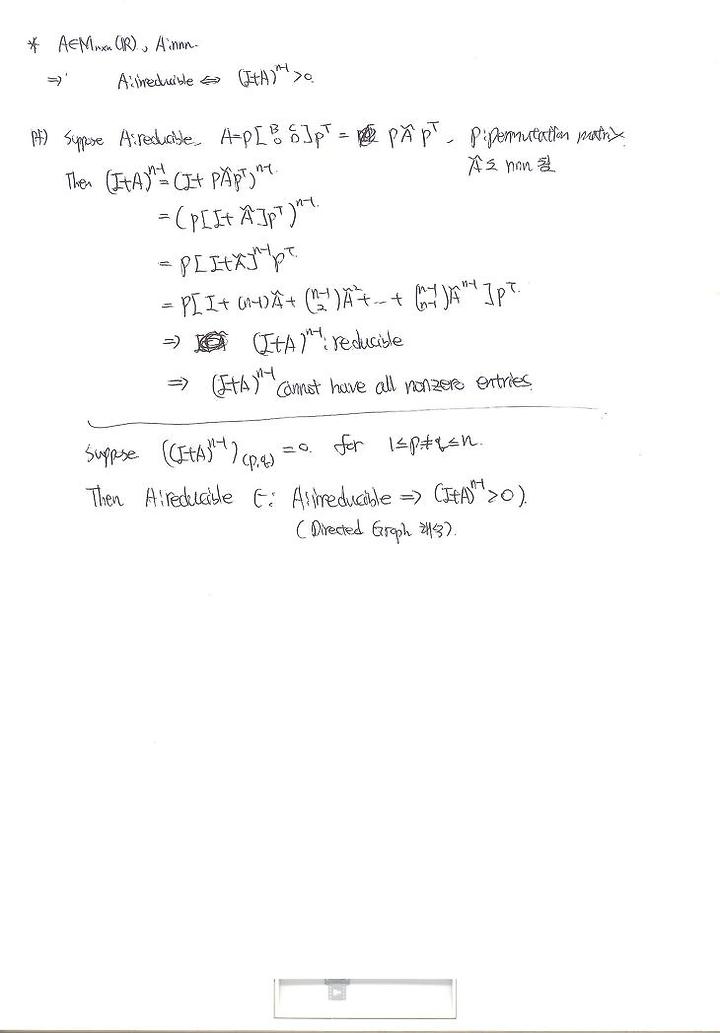 * A∈Mnxn(IR), A:nnn.
⇒ A:irreducible ⇔ (I+A)^{n-1} > 0.
Pf) Suppose A:reducible. A=P[B C; 0 D]P^T = PÂP^T. P:permutation matrix.
Â도 nnn 됨
Then (I+A)^{n-1} = (I+PÂP^T)^{n-1}.
= (P[I+Â]P^T)^{n-1}.
= P[I+Â]^{n-1}P^T.
= P[I+(n-1)Â+(n-1 2)Â^2+…+(n-1 n-1)Â^{n-1}]P^T.
⇒ (I+A)^{n-1}:reducible
⇒ (I+A)^{n-1} cannot have all nonzero entries.
Suppose ((I+A)^{n-1})_{(p,q)} = 0. for 1≤p≠q≤n.
Then A:reducible (∵ A:irreducible ⇒ (I+A)^{n-1}>0).
(Directed Graph 해석).